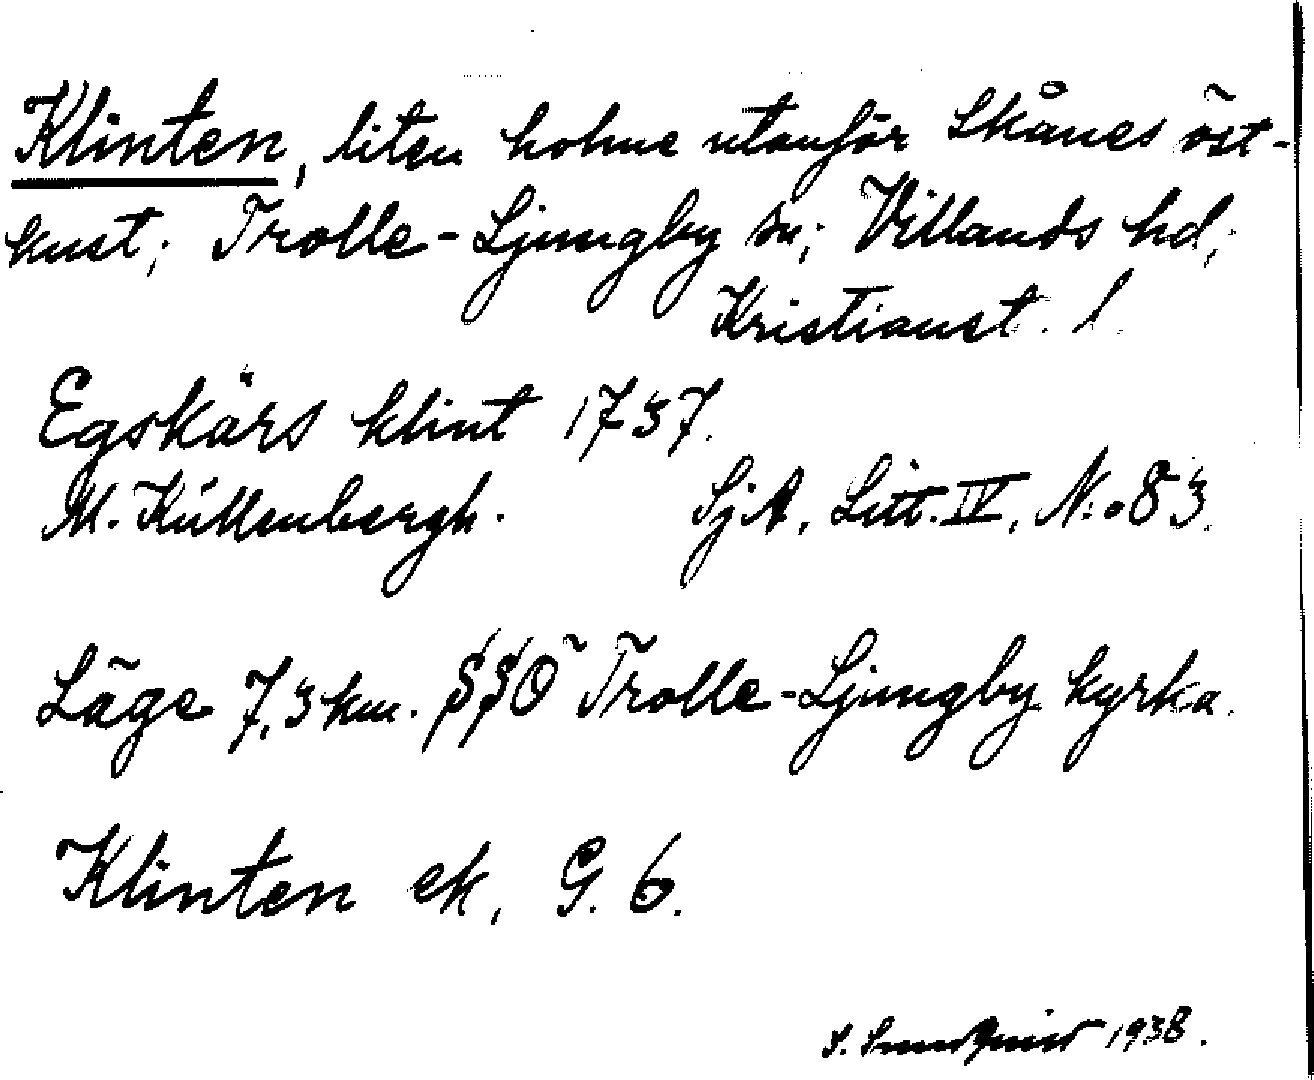 Klinten, liten holme utanför Skånes öst-
kust; Trolle-Ljungby sn; Villands hd;
Kristianst. l.
Egskärs klint 1737.
M. Küllenbergh. SjA, Litt. IV, No. 83.
Läge 7,3 km. SSÖ Trolle-Ljungby kyrka.
Klinten ek, G. 6.
1938.